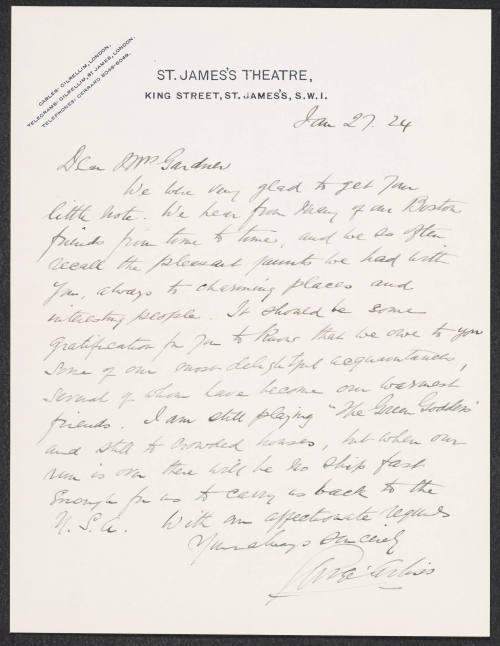 CABLES: DILRELLIM, LONDON.
TELEGRAMS: DILRELLIM, ST JAMES, LONDON.
TELEPHONES: GERRARD 3048-6049.
ST. JAMES'S THEATRE,
KING STREET, ST. JAMES'S, S.W.1.
Jan 27. 24
Dear Mrs Gardner
We were very glad to get your
little note. We hear from many of our Boston
friends from time to time, and we so often
recall the pleasant jaunts we had with
you, always to charming places and
interesting people. It should be some
gratification for you to know that we owe to you
some of our most delightful acquaintances,
several of whom have become our warmest
friends. I am still playing "The Green Goddess"
and still to crowded houses, but when our
run is over there will be no ship fast
enough for us to carry us back to the
U.S.A. With our affectionate regards
Yours always sincerely
George Arliss